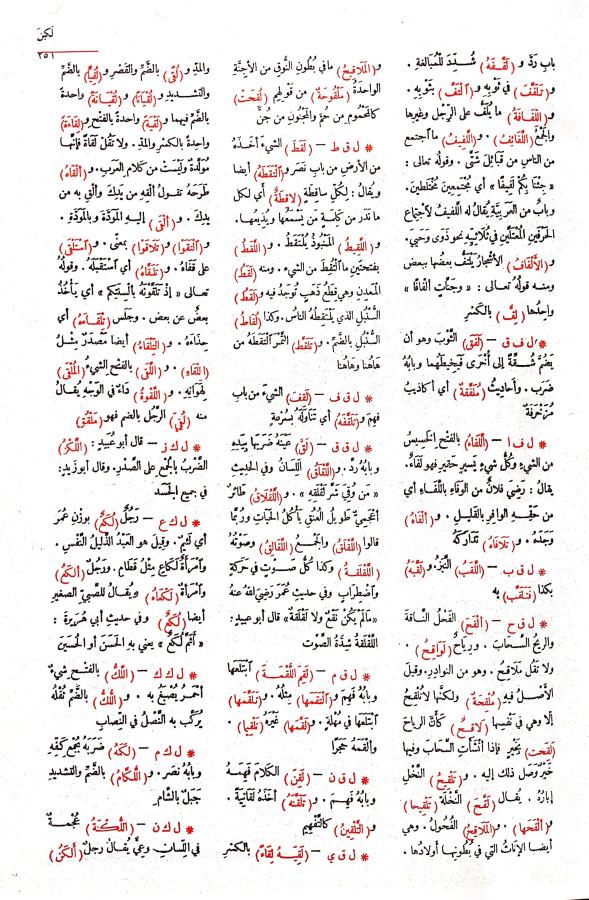 لَكِنَ
٣٥١
بابِ رَدَّ و (لَفَّفَهُ) شُدِّدَ لِلْمُبالَغَةِ.
و (تَلَفَّفَ) في ثَوْبِهِ و (الْتَفَّ) بِثَوْبِهِ.
و (اللِّفَافَةُ) ما يُلَفُّ على الرِّجْلِ وغيرِها
والجَمْعُ (اللَّفَائِفُ). و (اللَّفِيفُ) ما اجتمع
من الناسِ من قَبَائِلَ شَتَّى. وقولُه تعالى:
«جِئْنَا بِكُمْ لَفِيفًا» أي مُجْتَمِعِينَ مُخْتَلِطِينَ.
وبابٌ من العربيَّةِ يُقالُ له اللَّفِيفُ لاجْتِماعِ
الحَرْفَيْنِ المُعْتَلَّيْنِ في ثُلاثِيِّهِ نحو ذَوَى وحَيِيَ.
و (الأَلْفَافُ) الأَشْجارُ يَلْتَفُّ بعضُها ببعض
ومنه قولُه تعالى: «وجَنَّاتٍ أَلْفَافًا»
واحِدُها (لِفٌّ) بالكَسْرِ
* ل ف ق — (لَفَقَ) الثَّوْبَ وهو أن
يَضُمَّ شُقَّةً إلى أُخْرَى فَيَخِيطَهُما وبابُهُ
ضَرَبَ. وأَحادِيثُ (مُلَفَّقَةٌ) أي أكاذيبُ
مُزَخْرَفَةٌ
* ل ف ا — (اللَّفَاءُ) بالفتح الخَسِيسُ
من الشيءِ وكُلُّ شيءٍ يَسِيرٍ حَقِيرٍ فهو لَفَاءٌ.
يقالُ: رَضِيَ فلانٌ من الوَفَاءِ باللَّفَاءِ أي
من حَقِّهِ الوافِرِ بالقليلِ. و (أَلْفَاهُ)
وَجَدَهُ. و (تَلَافَاهُ) تَدَارَكَهُ
* ل ق ب — (اللَّقَبُ) النَّبَزُ و (لَقَّبَهُ)
بكذا (فَتَلَقَّبَ) به
* ل ق ح — (أَلْقَحَ) الفَحْلُ الناقةَ
والريحُ السَّحابَ. ورِياحٌ (لَوَاقِحُ).
ولا تَقُلْ مَلَاقِحُ. وهو من النوادِرِ. وقيلَ
الأَصْلُ فيه (مُلْقِحَةٌ) ولكنَّها لا تُلْقِحُ
إلا وهي في نَفْسِها (لاقِحٌ) كأنَّ الرياحَ
(لَقِحَت) بخَيْرٍ فإذا أَنْشَأَتِ السَّحابَ وفيها
خَيْرٌ وَصَلَ ذلك إليه. و (تَلْقِيحُ) النَّخْلِ
إبارُهُ. يقال (لَقَّحَ) النَّخْلَةَ (تَلْقِيحا)
و (أَلْقَحَها). و (المَلَاقِحُ) الفُحُولُ. وهي
أيضا الإناثُ التي في بُطُونِها أولادُها.
و (المَلَاقِيحُ) ما في بُطُونِ النُّوقِ من الأَجِنَّةِ
الواحدةُ (مَلْقُوحَةٌ) من قولِهم (لُقِحَتْ)
كالمَحْمُومِ من حُمَّ والمَجْنُونِ من جُنَّ
* ل ق ط — (لَقَطَ) الشيءَ أَخَذَهُ
من الأرضِ من باب نَصَرَ و (الْتَقَطَهُ) أيضا
ويُقالُ: لِكُلِّ ساقِطَةٍ (لاقِطَةٌ) أي لكلِّ
ما نَدَرَ من كَلِمَةٍ من يَسْمَعُها ويُذِيعُها.
و (اللَّقِيطُ) المَنْبُوذُ يُلْتَقَطُ. و (اللَّقَطُ)
بفتحتَيْنِ ما الْتُقِطَ من الشيءِ. ومنه (لَقَطُ)
المَعْدِنِ وهي قِطَعُ ذَهَبٍ تُوجَدُ فيه و (لَقَطُ)
السُّنْبُلِ الذي يَلْتَقِطُهُ الناسُ. وكذا (لُقَاطُ)
السُّنْبُلِ بالضَّمِّ. و (تَلَقَّطَ) التَّمْرَ الْتَقَطَهُ من
هاهُنا وهاهُنا
* ل ق ف — (لَقِفَ) الشيءَ من باب
فَهِمَ و (تَلَقَّفَهُ) أي تَنَاوَلَهُ بسُرْعَةٍ
* ل ق ق — (لَقَّ) عَيْنَهُ ضَرَبَها بيدِهِ
وبابُهُ رَدَّ. و (اللَّقْلَقُ) اللِّسانُ وفي الحديثِ
«من وُقِيَ شَرَّ لَقْلَقِهِ». و (اللَّقْلَاقُ) طائرٌ
أعجميٌّ طويلُ العُنُقِ يأكُلُ الحَيَّاتِ ورُبَّما
قالوا (اللَّقْلَقُ) والجَمْعُ (اللَّقَالِقُ) وصَوْتُهُ
(اللَّقْلَقَةُ) وكذا كُلُّ صَوْتٍ في حَرَكَةٍ
واضْطِرابٍ وفي حديثِ عُمَرَ رَضِيَ اللهُ عنه
«مَالَمْ يَكُنْ نَقْعٌ ولا لَقْلَقَةٌ» قال أبو عبيدٍ:
اللَّقْلَقَةُ شِدَّةُ الصَّوْتِ
* ل ق م — (لَقِمَ اللُّقْمَةَ) ابْتَلَعَها
وبابُهُ فَهِمَ و (الْتَقَمَها) مِثْلُهُ. و (تَلَقَّمَها)
ابْتَلَعَها في مُهْلَةٍ. و (لَقَّمَها) غَيْرَهُ (تَلْقِيما).
وأَلْقَمَهُ حَجَرًا
* ل ق ن — (لَقِنَ) الكَلامَ فَهِمَهُ
وبابُهُ فَهِمَ. و (تَلَقَّنَهُ) أَخَذَهُ لَقَانِيَةً.
و (التَّلْقِينُ) كالتَّفْهِيمِ
* ل ق ي — (لَقِيَهُ لِقَاءً) بالكَسْرِ
والمَدِّ و (لُقًى) بالضَّمِّ والقَصْرِ و (لُقِيًّا) بالضَّمِّ
والتشديدِ و (لُقْيَانًا) و (لُقْيَانَةً) واحدةً
بالضَّمِّ فيهما و (لَقْيَةً) واحدةً بالفتح و (لِقَاءَةً)
واحدةً بالكسرِ والمدِّ. ولا تَقُلْ لَقَاةً فإنَّها
مُوَلَّدَةٌ ولَيْسَتْ من كَلامِ العَرَبِ. و (أَلْقَاهُ)
طَرَحَهُ تقولُ أَلْقِهِ من يَدِكَ وأَلْقِ به من
يدِكَ. و (أَلْقَى) إليه المَوَدَّةَ وبالمَوَدَّةِ.
و (الْتَقَوْا) و (تَلَاقَوْا) بمعنًى. و (اسْتَلْقَى)
على قَفَاهُ. و (تَلَقَّاهُ) أي اسْتَقْبَلَهُ. وقولُهُ
تعالى «إذ تَلَقَّوْنَهُ بألسِنَتِكم» أي يأخُذُ
بعضٌ عن بعضٍ. وجَلَسَ (تِلْقَاءَهُ) أي
حِذَاءَهُ. و (التِّلْقَاءُ) أيضا مَصْدَرٌ مِثْلُ
(اللِّقَاءِ). و (اللَّقَى) بالفتح الشيءُ (المُلْقَى)
لِهَوَانِهِ. و (اللَّقْوَةُ) دَاءٌ في الوَجْهِ يُقالُ
منه (لُقِيَ) الرَّجُلُ بالضم فهو (مَلْقُوٌّ)
* ل ك ز — قال أبو عُبَيدٍ: (اللَّكْزُ)
الضَّرْبُ بالجُمْعِ على الصَّدْرِ. وقال أبو زيدٍ:
في جميعِ الجَسَدِ
* ل ك ع — رَجُلٌ (لُكَعٌ) بوزنِ عُمَرَ
أي لئيمٌ. وقيلَ هو العَبْدُ الذَّلِيلُ النَّفْسِ.
وامْرَأَةٌ لَكَاعِ مِثْلُ قَطَامِ. ورَجُلٌ (أَلْكَعُ)
وامرأةٌ (لَكْعَاءُ) ويُقالُ للصبيِّ الصغيرِ
أيضا (لُكَعٌ). وفي حديثِ أبي هُرَيرةَ:
«أَثَمَّ لُكَعُ» يعني به الحَسَنَ أو الحُسَيْنَ
* ل ك ك — (اللَّكُّ) بالفتح شيءٌ
أَحْمَرُ يُصْبَغُ به. و (اللُّكُّ) بالضَّمِّ ثُفْلُهُ
يُرَكَّبُ به النَّصْلُ في النِّصابِ
* ل ك م — (لَكَمَهُ) ضَرَبَهُ بجُمْعِ كَفِّهِ
وبابُهُ نَصَرَ. و (اللُّكَّامُ) بالضَّمِّ والتشديدِ
جَبَلٌ بالشَّامِ
* ل ك ن — (اللُّكْنَةُ) عُجْمَةٌ
في اللِّسانِ وعِيٌّ يُقالُ رجلٌ (أَلْكَنُ)